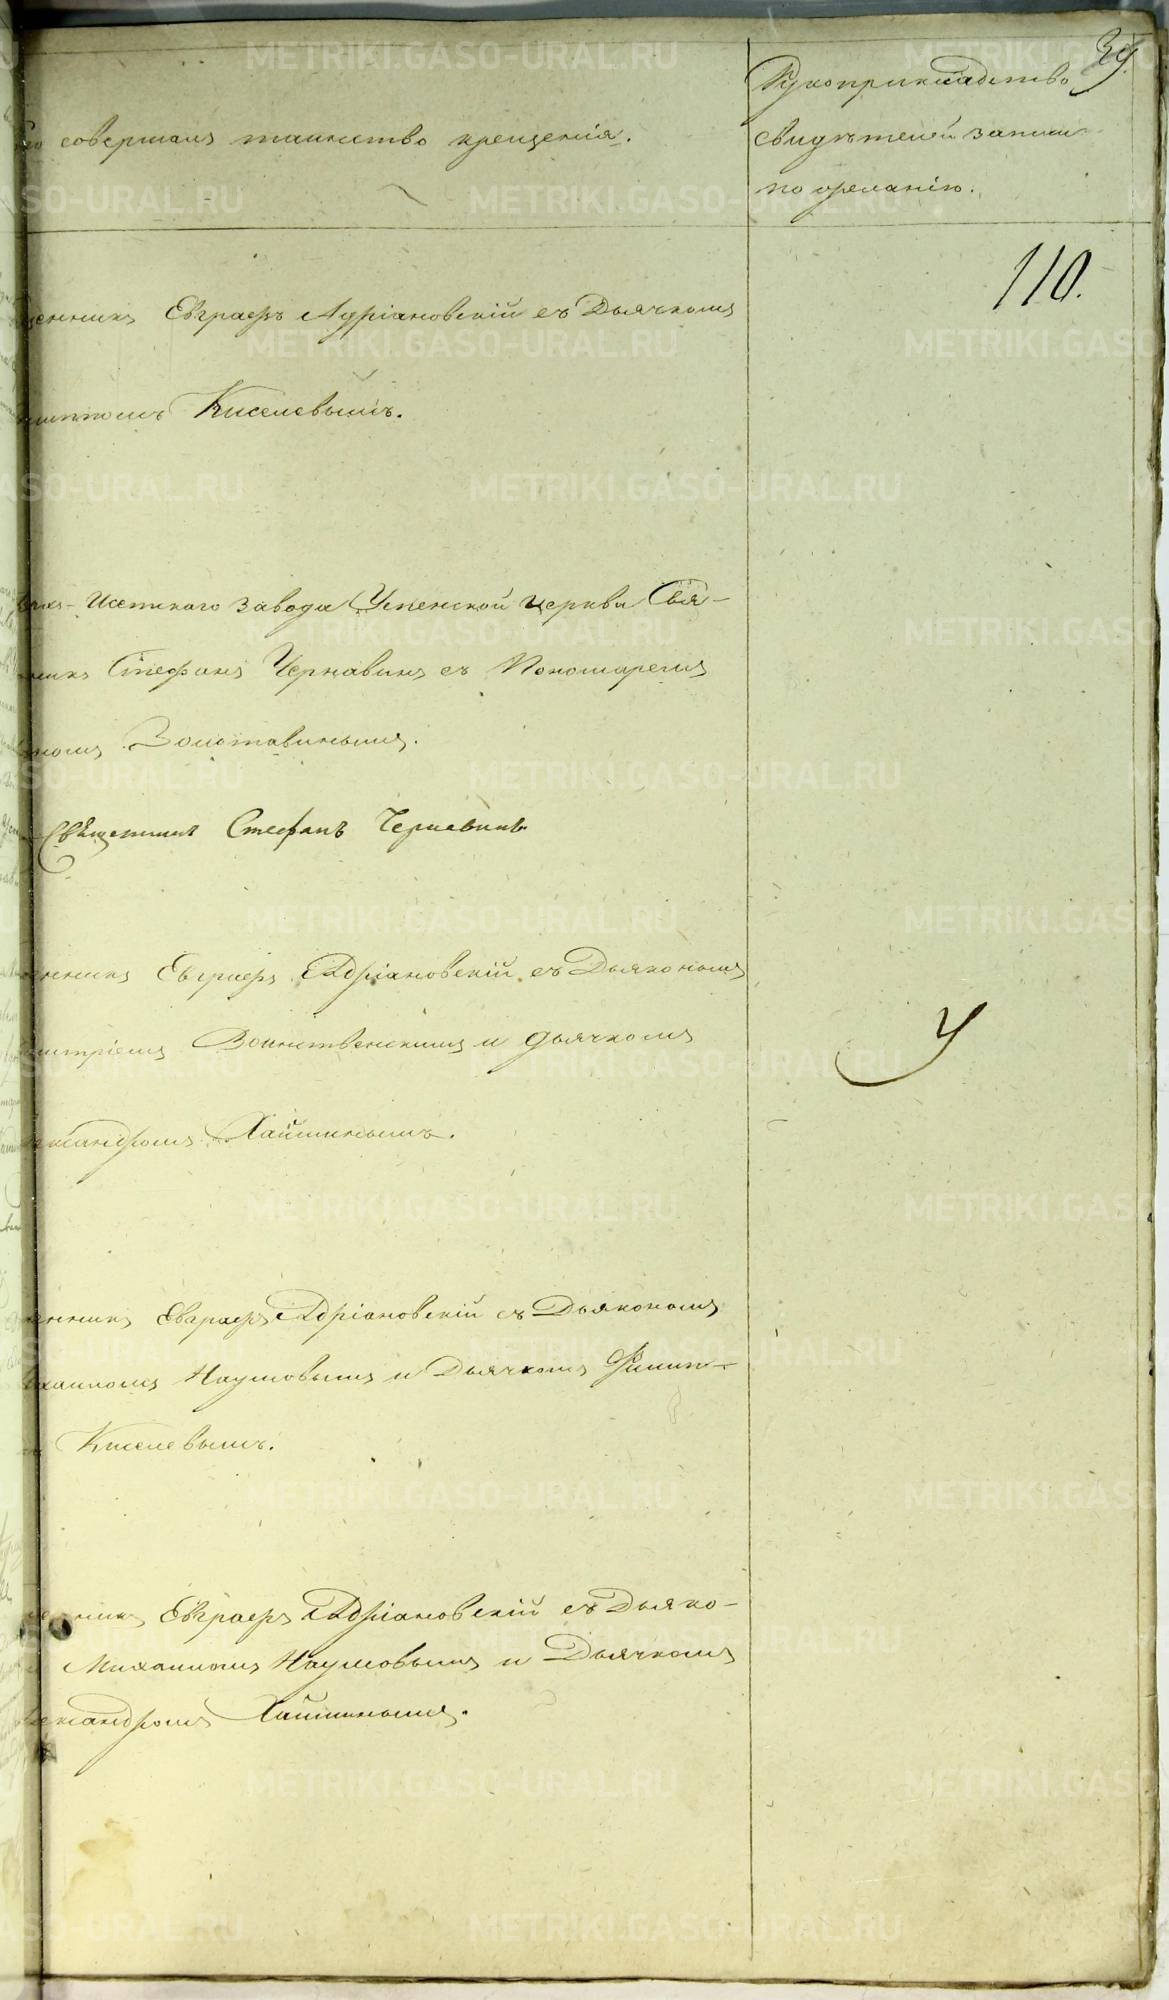 39.
совершалъ таинство крещенія.
Рукоприкладство
свидѣтелей записи
по желанію.
110.
щенникъ Евграфъ Адріановскій съ Дьячкомъ
Киселевымъ.
Исетскаго завода Успенской церкви Свя-
никъ Стефанъ Чернавинъ съ Пономаремъ
Золотавинымъ.
Священникъ Стефанъ Чернавинъ
енникъ Евграфъ Адріановскій съ Дьякономъ
митріемъ Воинственскимъ и дьячкомъ
ксандромъ Хайминымъ.
У
енникъ Евграфъ Адріановскій съ Дьякономъ
ихаиломъ Наумовымъ и Дьячкомъ Филип-
Киселевымъ.
енникъ Евграфъ Адріановскій съ Дьяко-
Михаиломъ Наумовымъ и Дьячкомъ
ександромъ Хайминымъ.
METRIKI.GASO-URAL.RU